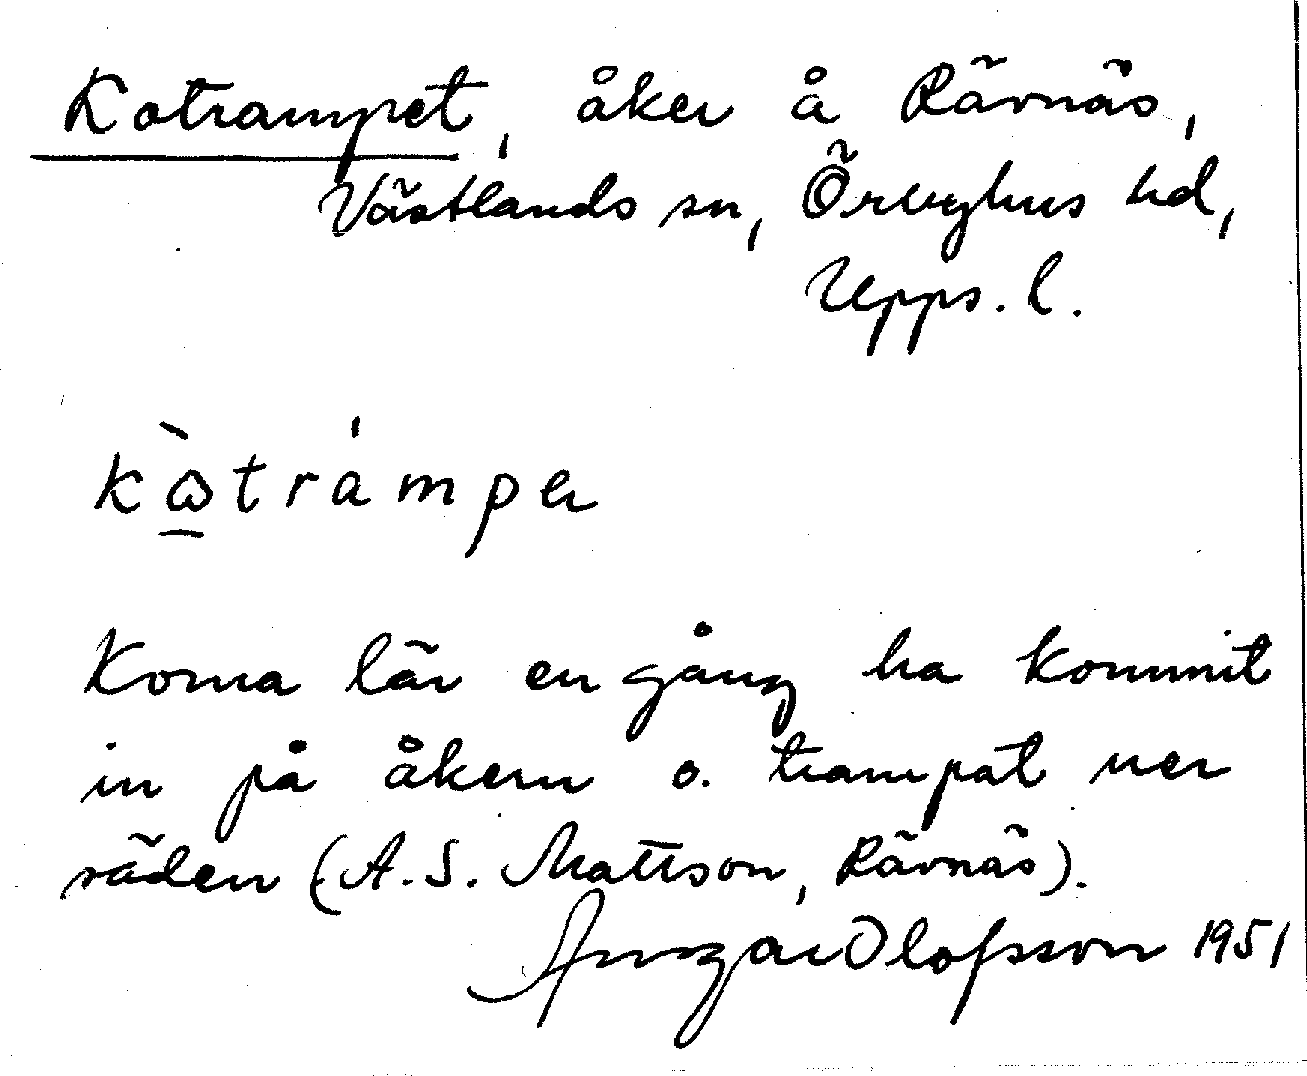 Kotrampet, åker å Rävnäs,
Västlands sn, Örbyhus hd,
Upps. l.
kὼ̲trámpa
Korna lär en gång ha kommit
in på åkern o. trampat ner
säden (A. S. Mattson, Rävnäs).
Ansgar Olofsson 1951